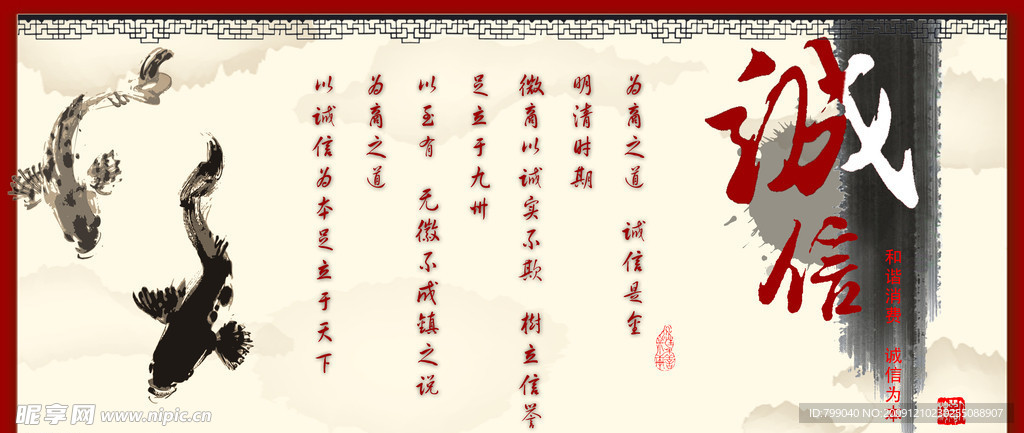 诚信
和谐消费 诚信为本
为商之道 诚信是金
明清时期
徽商以诚实不欺 树立信誉
足立于九州
以至有 无徽不成镇之说
为商之道
以诚信为本足立于天下
昵享网 www.nipic.cn
ID:799040 NO:20091210230255088907